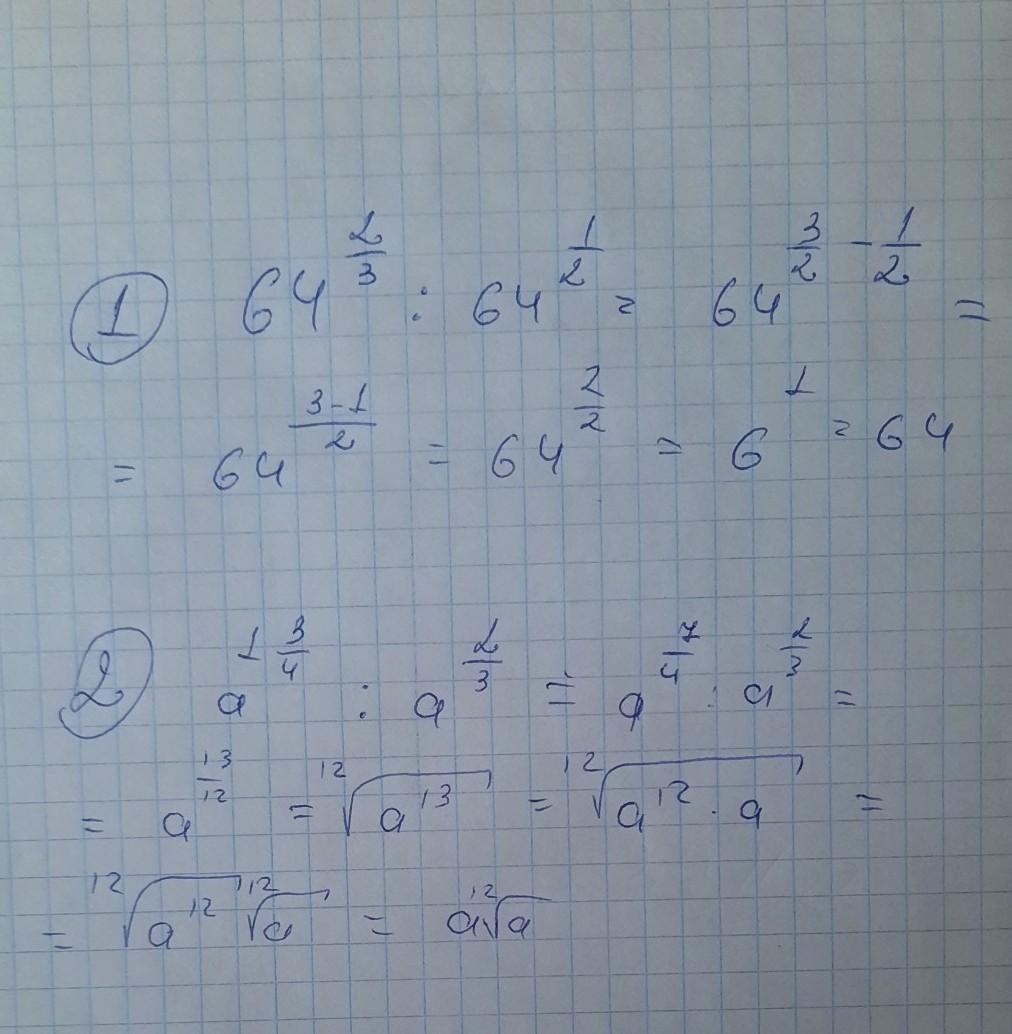 ① 64^(2/3) : 64^(1/2) = 64^(3/2 - 1/2) =
= 64^((3-1)/2) = 64^(2/2) = 6^1 = 64
② a^(1 3/4) : a^(2/3) = a^(7/4) : a^(2/3) =
= a^(13/12) = ¹²√(a^13) = ¹²√(a^12 · a) =
= ¹²√(a^12) ¹²√a = a ¹²√a